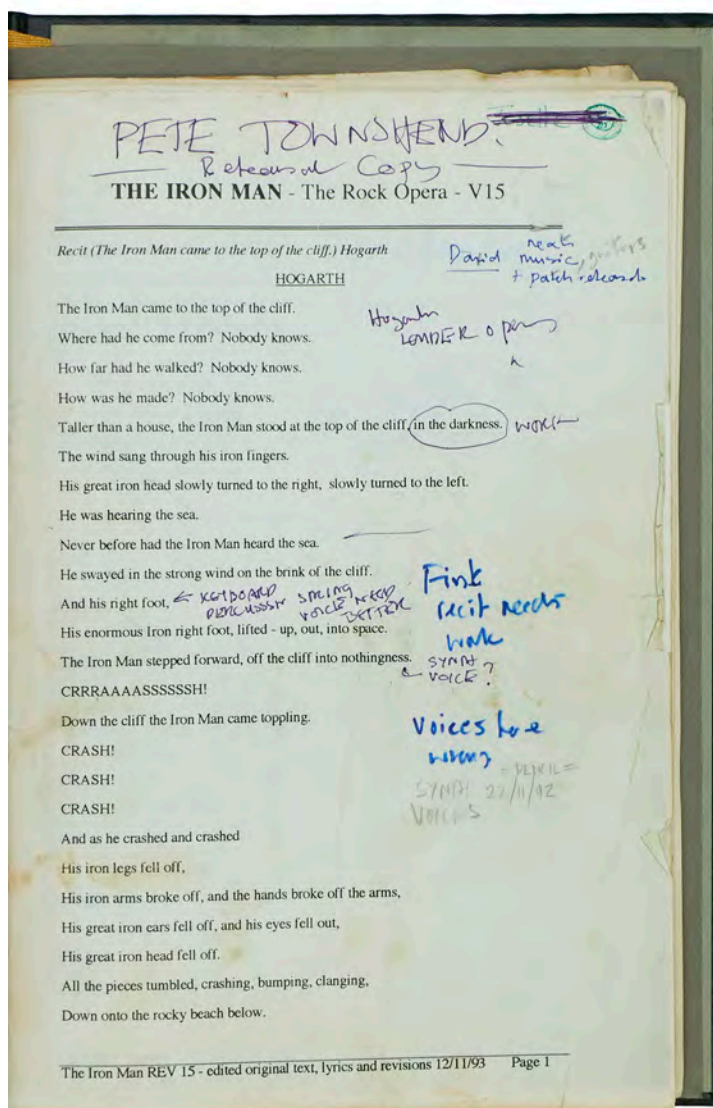 PETE TOWNSHEND.
Rehearsal Copy
THE IRON MAN - The Rock Opera - V15
Recit (The Iron Man came to the top of the cliff.) Hogarth
David music,
+ patch
HOGARTH
The Iron Man came to the top of the cliff.
Hogarth
LOUDER
Where had he come from? Nobody knows.
How far had he walked? Nobody knows.
How was he made? Nobody knows.
Taller than a house, the Iron Man stood at the top of the cliff, in the darkness. WORK
The wind sang through his iron fingers.
His great iron head slowly turned to the right, slowly turned to the left.
He was hearing the sea.
Never before had the Iron Man heard the sea.
He swayed in the strong wind on the brink of the cliff.
And his right foot, KEYBOARD STRING NEED
VOICE BETTER
recit needs
work
His enormous Iron right foot, lifted - up, out, into space.
The Iron Man stepped forward, off the cliff into nothingness. SYNTH
VOICE?
CRRRAAAASSSSSSH!
Down the cliff the Iron Man came toppling.
Voices here
wrong
CRASH!
CRASH!
SYNTH
VOICES
CRASH!
And as he crashed and crashed
His iron legs fell off,
His iron arms broke off, and the hands broke off the arms,
His great iron ears fell off, and his eyes fell out,
His great iron head fell off.
All the pieces tumbled, crashing, bumping, clanging,
Down onto the rocky beach below.
The Iron Man REV 15 - edited original text, lyrics and revisions 12/11/93 Page 1